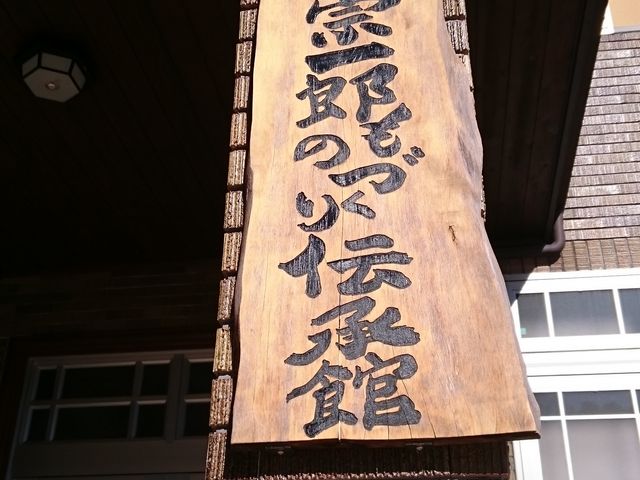 宗一郎ものづくり伝承館